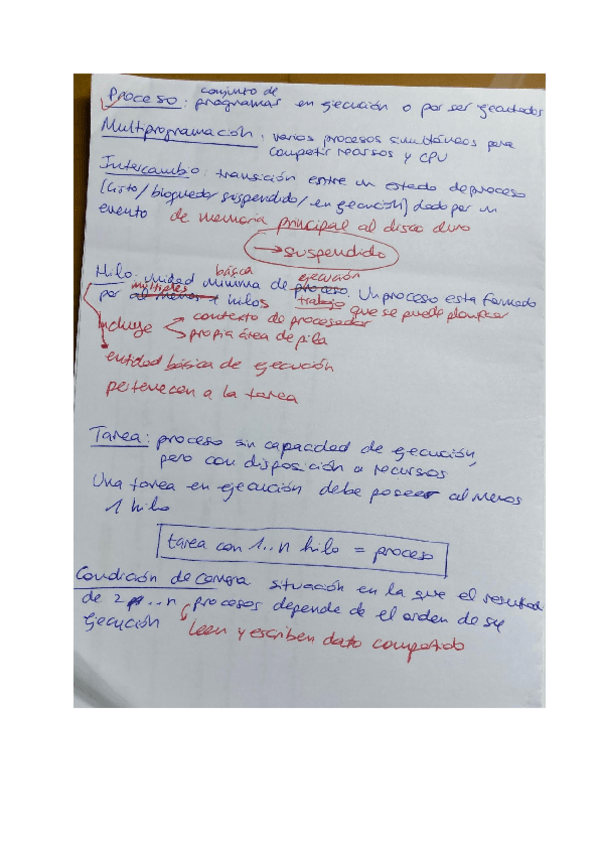 conjunto de
Proceso: programas en ejecución o por ser ejecutados
Multiprogramación: varios procesos simultáneos para
competir recursos y CPU
Intercambio: transición entre un estado de proceso
(listo/bloqueado suspendido/en ejecución) dado por un
evento de memoria principal al disco duro
→ suspendido
básica ejecución
Hilo: unidad mínima de proceso. Un proceso esta formado
múltiples trabajo que se puede planificar
por al menos 1 hilos
Incluye contexto de procesador
propia área de pila
entidad básica de ejecución
pertenecen a la tarea
Tarea: proceso sin capacidad de ejecución,
pero con disposición a recursos
Una tarea en ejecución debe poseer al menos
1 hilo
tarea con 1..n hilo = proceso
Condición de carrera situación en la que el resultado
de 2 ..n procesos depende de el orden de su
ejecución leen y escriben dato compartido